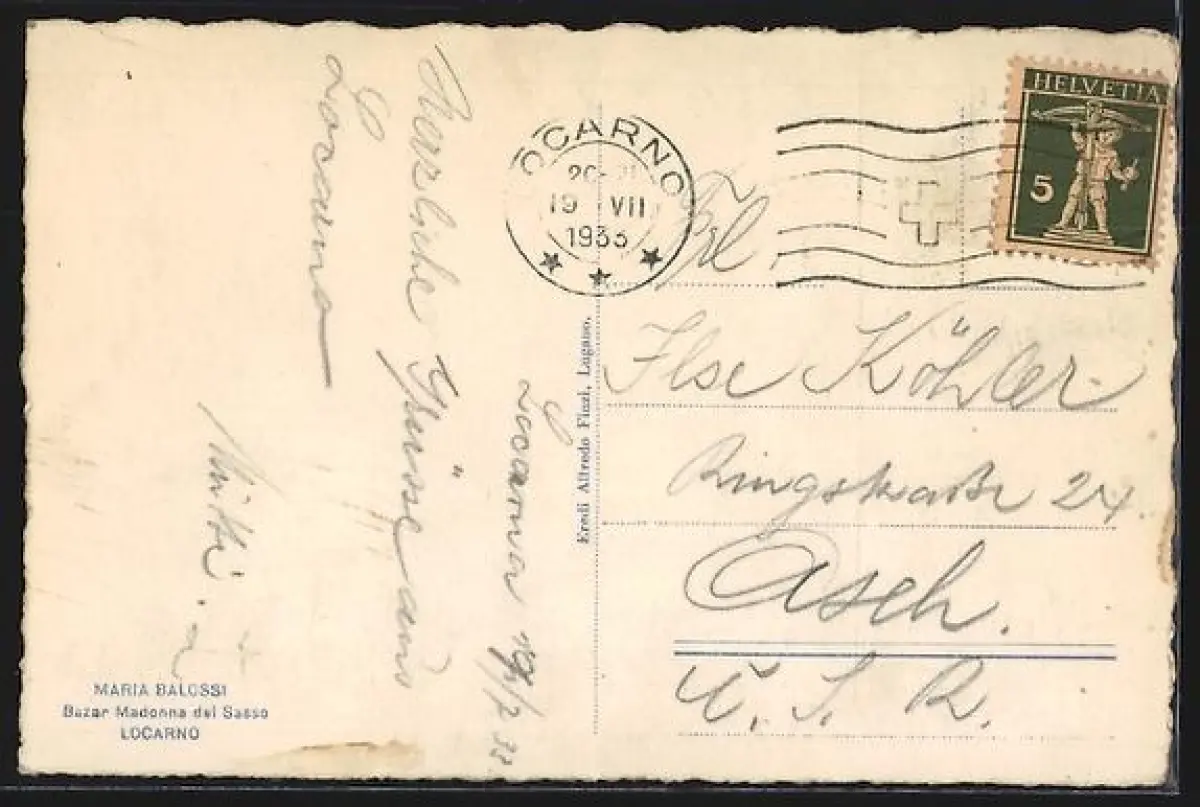 Locarno 19/7 33.
Herzliche Grüsse aus
Locarno
MARIA BALOSSI
Bazar Madonna del Sasso
LOCARNO
Eredi Alfredo Finzi, Lugano.
LOCARNO
20-21
19 VII
1933
HELVETIA
5
Frl.
Ilse Köhler.
Ringstraße 24.
Asch.
Č. S. R.